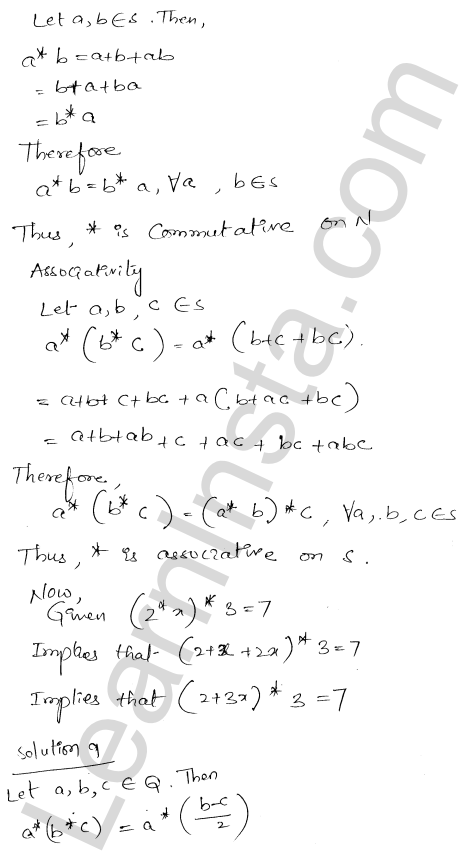 Let a, b ∈ s . Then,
a* b = a+b+ab
= b+a+ba
= b* a
Therefore
a* b = b* a, ∀a , b ∈ s
Thus, * is Commutative on N
Associativity
Let a, b , c ∈ s
a* (b* c) = a* (b+c+bc).
= a+b+ c+bc + a(b+ac +bc)
= a+b+ab+c + ac + bc + abc
Therefore,
a* (b* c) = (a* b) * c , ∀a, b, c ∈ s
Thus, * is associative on s .
Now,
Given (2* x)* 3=7
Implies that (2+x +2x)* 3=7
Implies that (2+3x)* 3 = 7
Solution 9
Let a, b, c ∈ Q . Then
a*(b*c) = a* ((b-c)/2)
LearnInsta.com